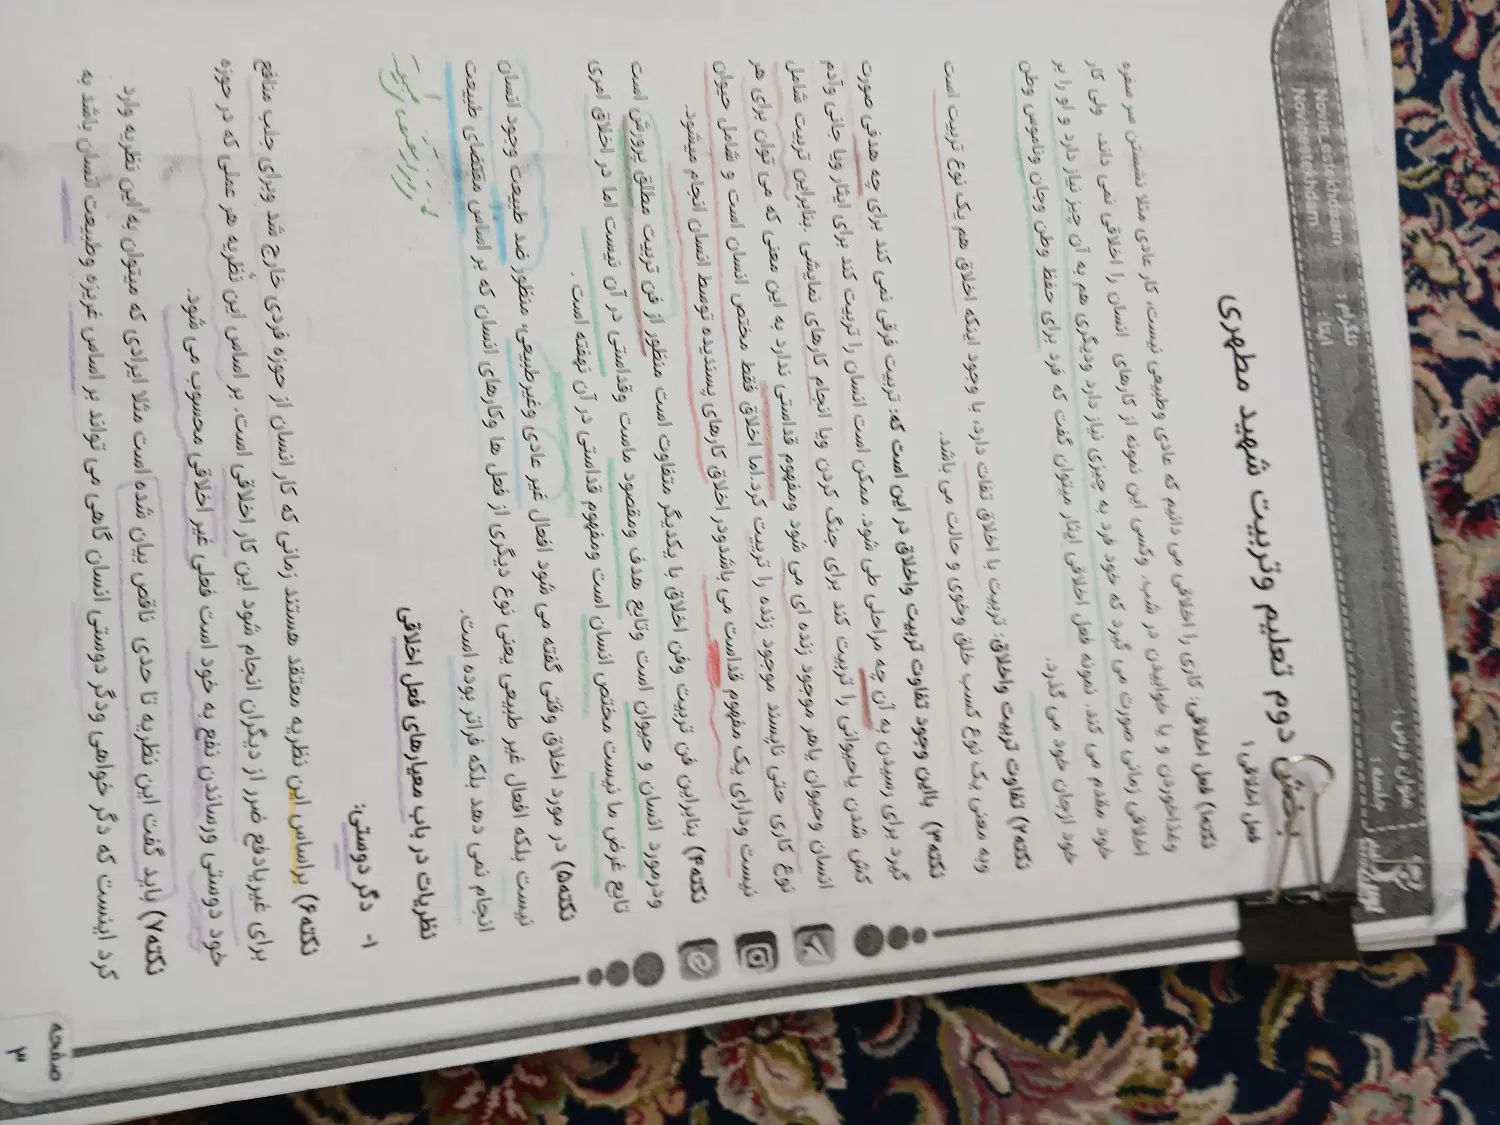 عنوان درس :
جلسه :
تلگرام : Novin_estekhdam
ایتا : Novinestekhdam
نوین استخدام
بخش دوم تعلیم وتربیت شهید مطهری
فعل اخلاقی۱
نکته۱) فعل اخلاقی: کاری را اخلاقی می دانیم که عادی وطبیعی نیست، کار عادی مثلا نشستن سر سفره
وغذاخوردن و یا خوابیدن در شب. وکسی این نمونه از کارهای انسان را اخلاقی نمی داند. ولی کار
اخلاقی زمانی صورت می گیرد که خود فرد به چیزی نیاز دارد ودیگری هم به آن چیز نیاز دارد و او را بر
خود مقدم می کند. نمونه فعل اخلاقی ایثار میتوان گفت که فرد برای حفظ وطن وجان وناموس وطن
خود ازجان خود می گذرد.
نکته۲) تفاوت تربیت واخلاق: تربیت با اخلاق تفات دارد، با وجود اینکه اخلاق هم یک نوع تربیت است
وبه معنی یک نوع کسب خلق وخوی و حالت می باشد.
نکته۳) بااین وجود تفاوت تربیت واخلاق در این است که: تربیت فرقی نمی کند برای چه هدفی صورت
گیرد برای رسیدن به آن چه مراحلی طی شود. ممکن است انسان را تربیت کند برای ایثار ویا جانی وآدم
کش شدن یاحیوانی را تربیت کند برای جنگ کردن ویا انجام کارهای نمایشی. بنابراین تربیت شامل
انسان وحیوان یاهر موجود زنده ای می شود ومفهوم قداستی ندارد به این معنی که می توان برای هر
نوع کاری حتی ناپسند موجود زنده را تربیت کرد.اما اخلاق فقط مختص انسان است و شامل حیوان
نیست ودارای یک مفهوم قداست می باشدودر اخلاق کارهای پسندیده توسط انسان انجام میشود.
نکته۴) بنابراین فن تربیت وفن اخلاق با یکدیگر متفاوت است منظور از فن تربیت مطلق پرورش است
ودرمورد انسان و حیوان است وتابع هدف ومقصود ماست وقداستی در آن نیست اما در اخلاق امری
تابع غرض ما نیست مختص انسان است ومفهوم قداستی در آن نهفته است.
نکته۵) در مورد اخلاق وقتی گفته می شود افعال غیر عادی وغیرطبیعی، منظور ضد طبیعت وجود انسان
نیست بلکه افعال غیر طبیعی یعنی نوع دیگری از فعل ها وکارهای انسان که بر اساس مقتضای طبیعت
انجام نمی دهد بلکه فراتر بوده است.
نظریات در باب معیارهای فعل اخلاقی
۱- دگر دوستی:
نکته۶) براساس این نظریه معتقد هستند زمانی که کار انسان از حوزه فردی خارج شد وبرای جلب منافع
برای غیریادفع ضرر از دیگران انجام شود این کار اخلاقی است. بر اساس این نظریه هر عملی که در حوزه
خود دوستی ورساندن نفع به خود است فعلی غیر اخلاقی محسوب می شود.
نکته۷) باید گفت این نظریه تا حدی ناقص بیان شده است مثلا ایرادی که میتوان به این نظریه وارد
کرد اینست که دگر خواهی ودگر دوستی انسان گاهی می تواند بر اساس غریزه وطبیعت انسان باشد به
صفحه
۳